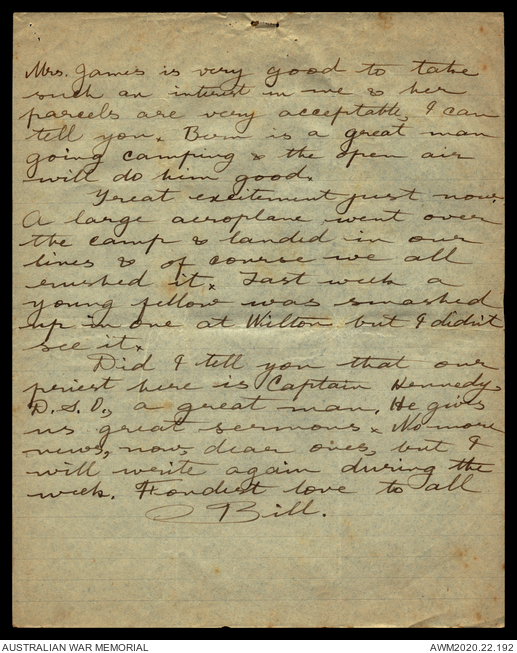 Mrs. James is very good to take
such an interest in me & her
parcels are very acceptable, I can
tell you. Burn is a great man
going camping & the open air
will do him good.
Great excitement just now.
A large aeroplane went over
the camp & landed in our
lines & of course we all
rushed it. Last week a
young fellow was smashed
up in one at Wilton but I didn't
see it.
Did I tell you that our
priest here is Captain Kennedy,
D.S.O., a great man. He gives
us great sermons. No more
news, now, dear ones, but I
will write again during the
week. Fondest love to all
Bill.
AUSTRALIAN WAR MEMORIAL
AWM2020.22.192